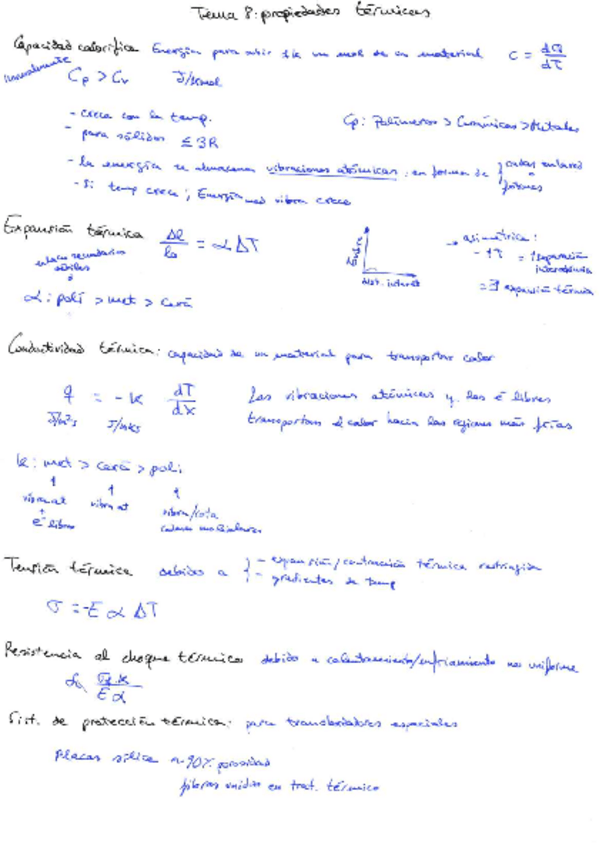 Tema 8: propiedades térmicas
Capacidad calorífica Energía para subir 1k un mol de un material C = dQ/dT
normalmente Cp > Cv J/kmol
- crece con la temp. Cp: Polímeros > Cerámicas > Metales
- para sólidos ≤ 3R
- la energía se almacena vibraciones atómicas, en forma de { ondas
- Si temp crece; Energía med vibra crece fonones
Expansión térmica Δl/l0 = α ΔT
→ asimétrica:
- ↑T = ↑separación interatómica
= ∃ expansión térmica
dist. interat
enlaces secundarios débiles
α: poli > met > cerá
Conductividad térmica: capacidad de un material para transportar calor
q = -k dT/dx Las vibraciones atómicas y los e⁻ libres
J/m²s J/mks transportan el calor hacia las regiones más frías
k: met > cerá > poli
vibra at vibra at vibra/rota
+
e⁻ libres cadenas moleculares
Tensión térmica debidas a { - expansión/contracción térmica restringida
- gradientes de temp
σ = -E α ΔT
Resistencia al choque térmico debido a calentamiento/enfriamiento no uniforme
σf k / E α
Sist. de protección térmica: para transbordadores espaciales
Placas sílice ~90% porosidad
fibras unidas en trat. térmico